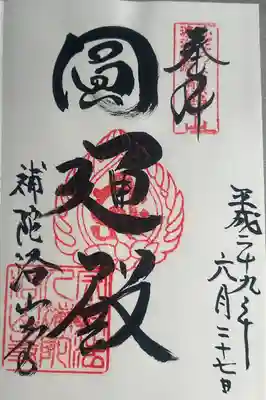 奉拝
平成二十九年
六月二十七日
圓通殿
補陀洛山寺